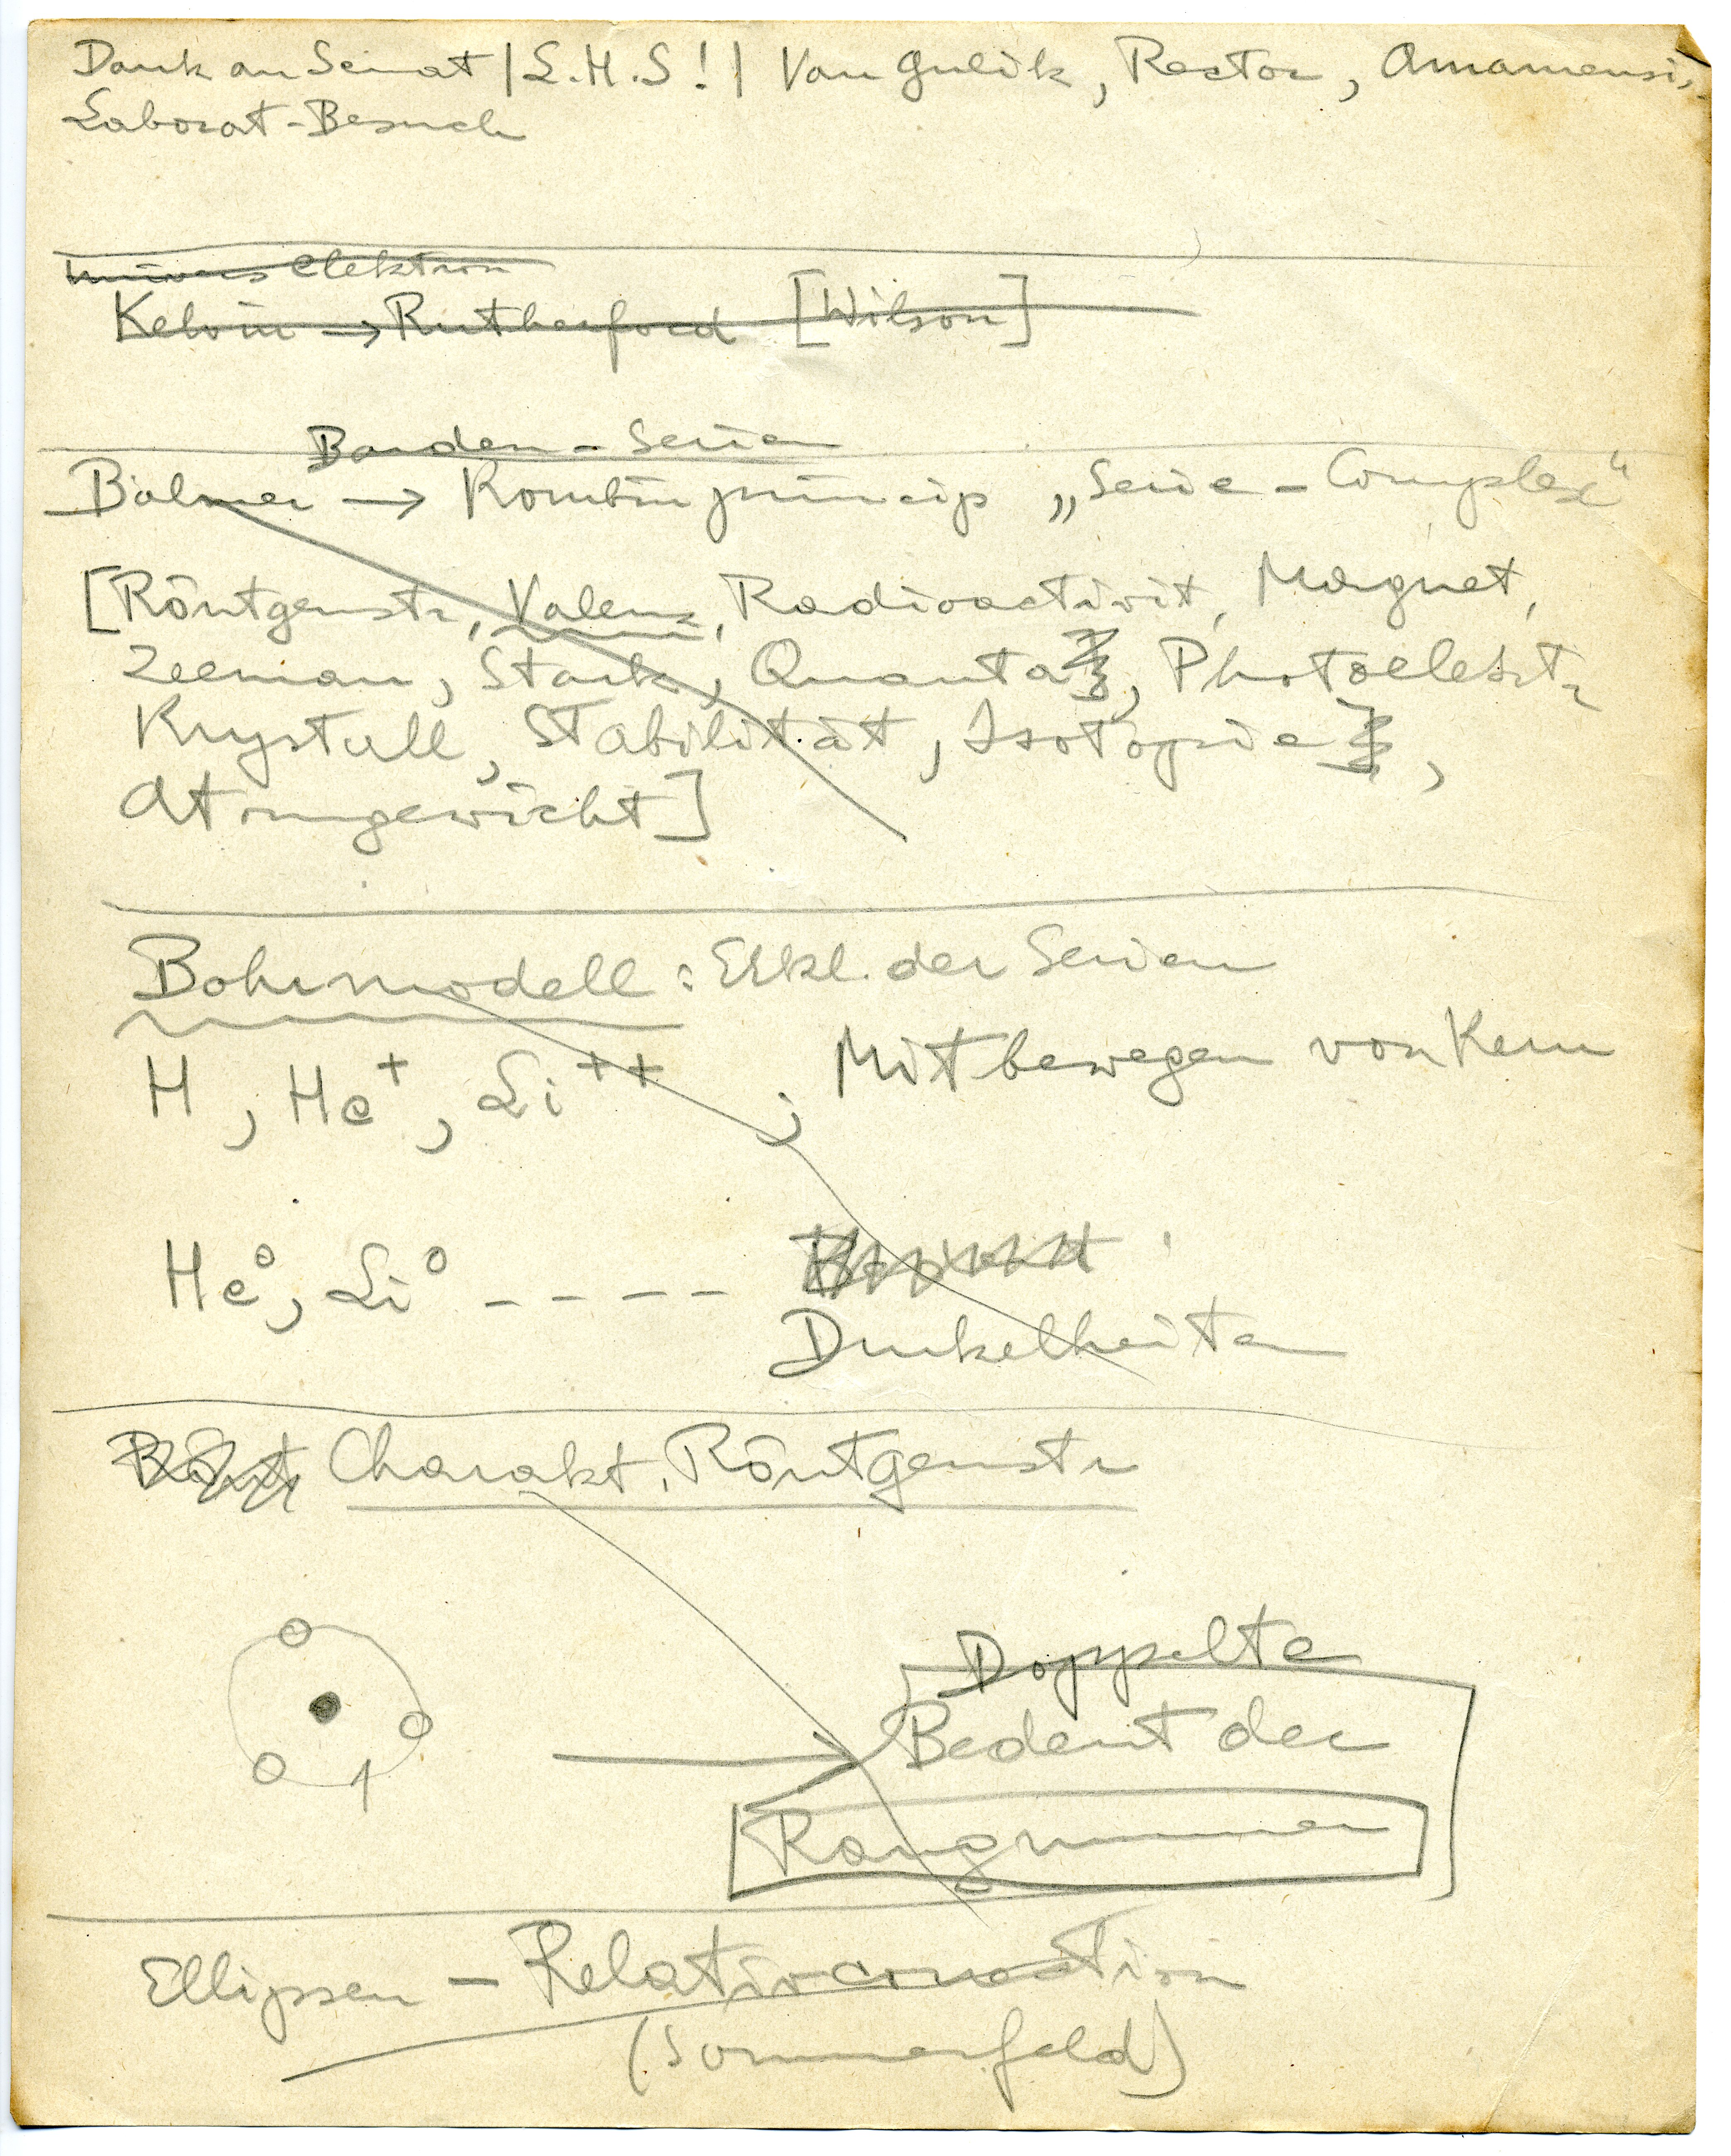 Dank an Senat | L.H.S! | Van Gulik, Rector, Amanuensis,
Laborat-Besuch
Univers elektron
Kelvin → Rutherford [Wilson]
Banden - Serien
Balmer → Kombinprincip „Serie - Complex“
[Röntgenstr, Valenz, Radioactivit, Magnet,
Zeeman, Stark, Quanta, Photoelektr
Krystall, Stabilität, Isotopie,
Atomgewicht]
Bohrmodell : Erkl. der Serien
H, He+, Li++ , Mitbewegen von Kern
He⁰, Li⁰ - - - -
Dunkelheiten
Rönt Charakt. Röntgenstr
Doppelte
Bedeut der
Rangnummer
Ellipsen - Relativcorrection
(Sommerfeld)